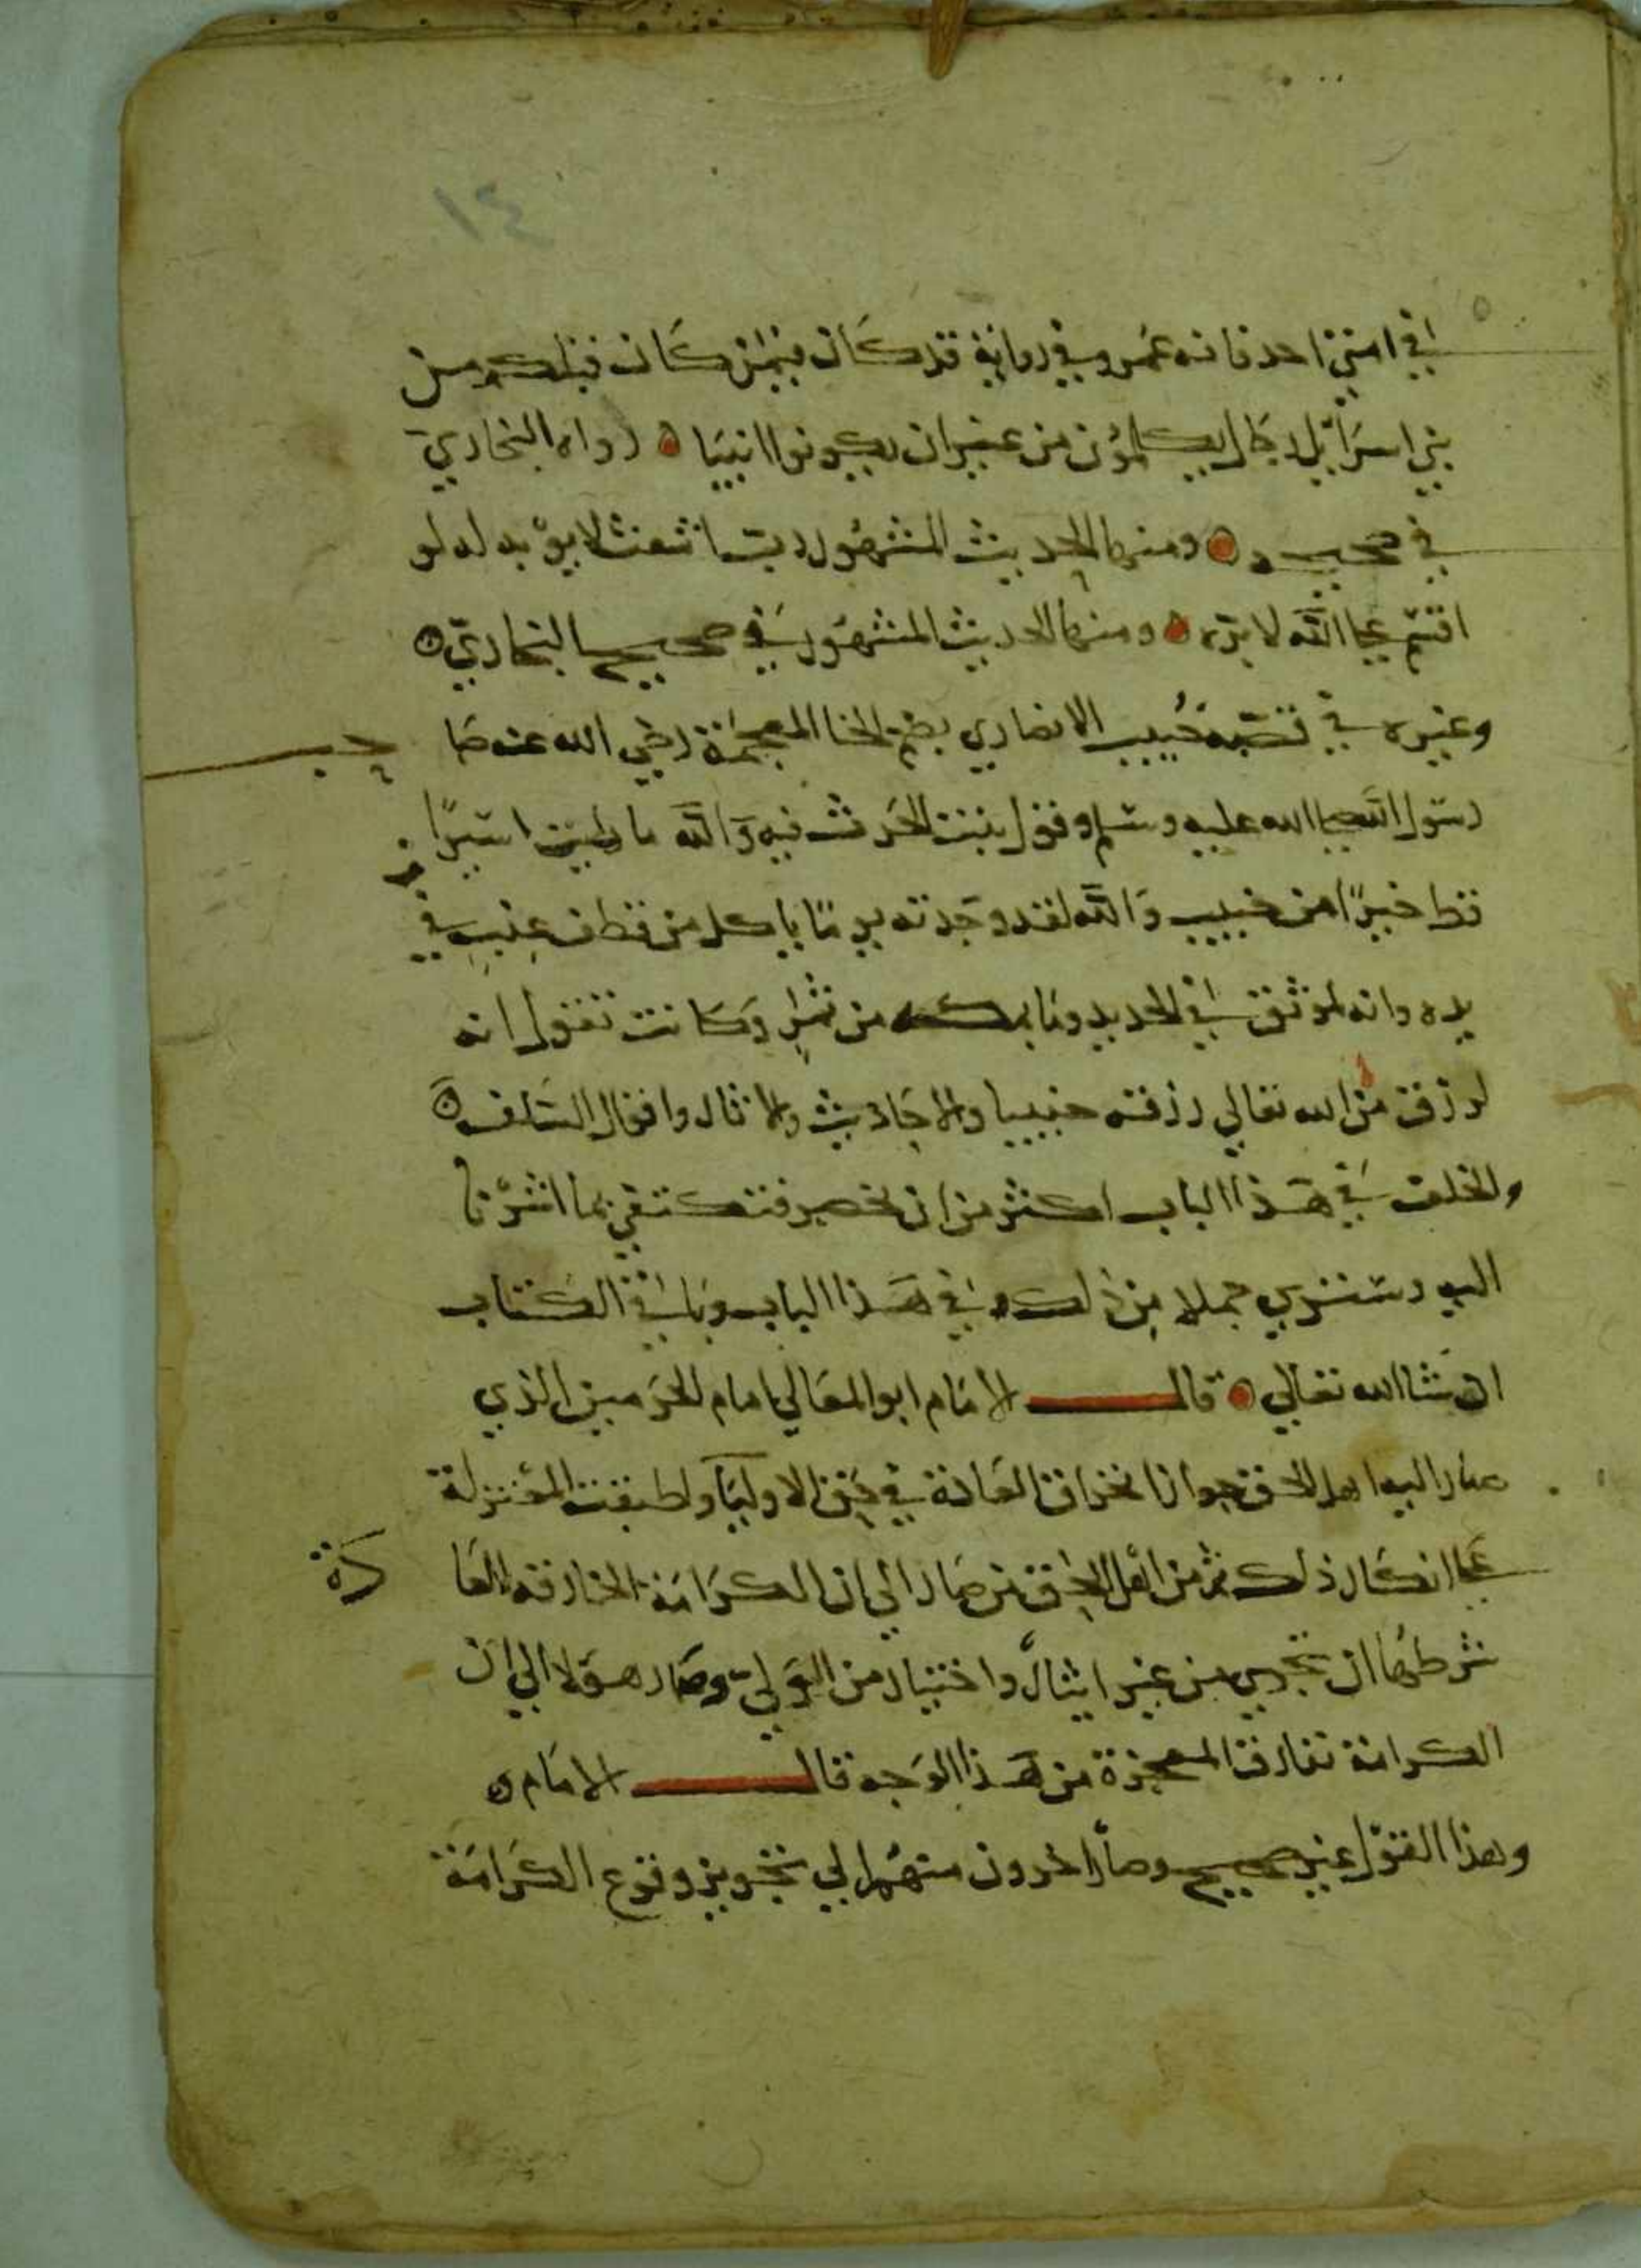 ١٤
في امتي احد فانه عمر وفي رواية قد كان فيمن كان قبلكم من
بني اسرائيل رجال يكلمون من غير ان يكونوا انبيا رواه البخاري
في صحيحه ومنها الحديث المشهور رب اشعث لا يوبه له لو
اقسم على الله لابره ومنها الحديث المشهور في صحيح البخاري
وغيره في قصة خبيب الانصاري بضم الخا المعجمة رضي الله عنه صا
حب
رسول الله صلى الله عليه وسلم وقول بنت الحرث فيه والله ما رايت اسيرا
قط خيرا من خبيب والله لقد وجدته يوما ياكل من قطف عنب في
يده وانه لموثق في الحديد وما بمكه من ثمر وكانت تقول انه
لرزق من الله تعالي رزقه خبيبا والاحاديث والاثار واقوال السلف
والخلف في هذا الباب اكثر من ان تحصر فنكتفي بما اشرنا
اليه وستري جملا من ذلك في هذا الباب وباقي الكتاب
ان شا الله تعالي قال الامام ابو المعالي امام الحرمين الذي
صار اليه اهل الحق جواز انخراق العادة في حق الاوليا واطبقت المعتزلة
على انكار ذلك ثم من اهل الحق من صار الي ان الكرامة الخارقه للعا
دة
شرطها ان تجري من غير ايثار واختيار من الولي وصار هولا الي ان
الكرامة تفارق المعجزة من هذا الوجه قال الامام
وهذا القول غير صحيح وصار اخرون منهم الي تجويز وقوع الكرامة